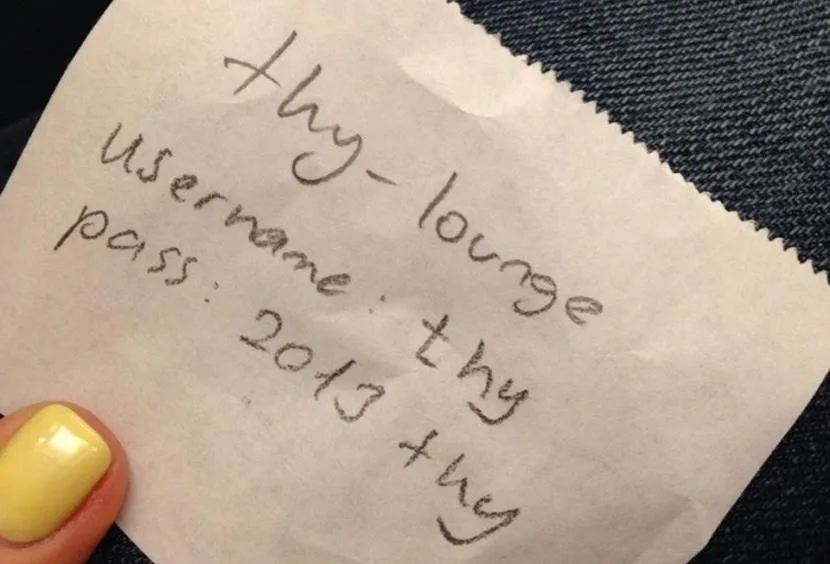 thy-lounge
username: thy
pass: 2013 thy